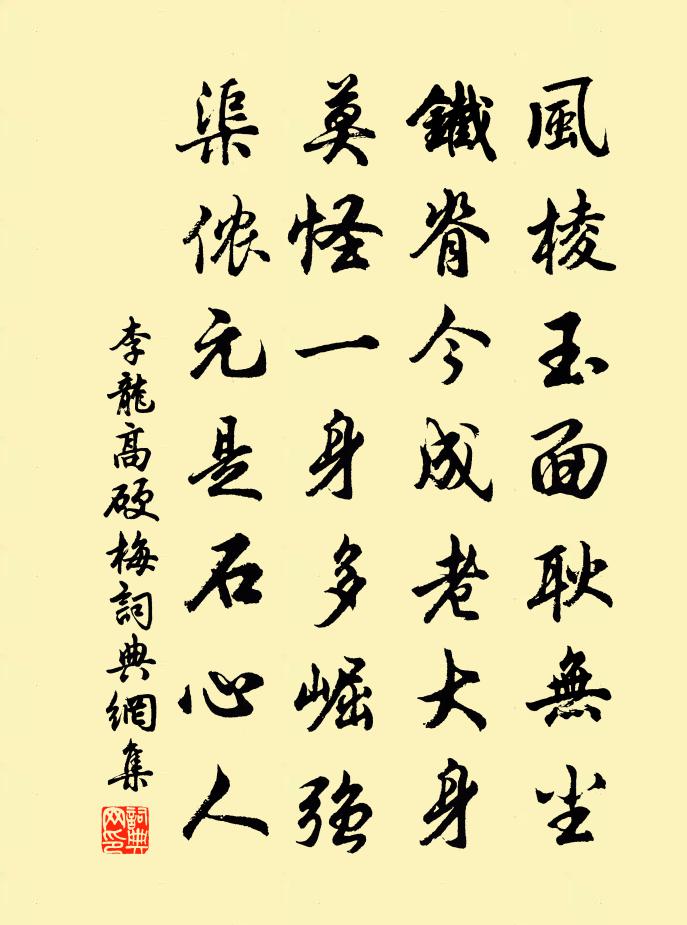 風棱玉面耿無尘
鐵脊今成老大身
莫怪一身多崛强
渠侬元是石心人
李龍高硬梅詞典網集
詞典网印